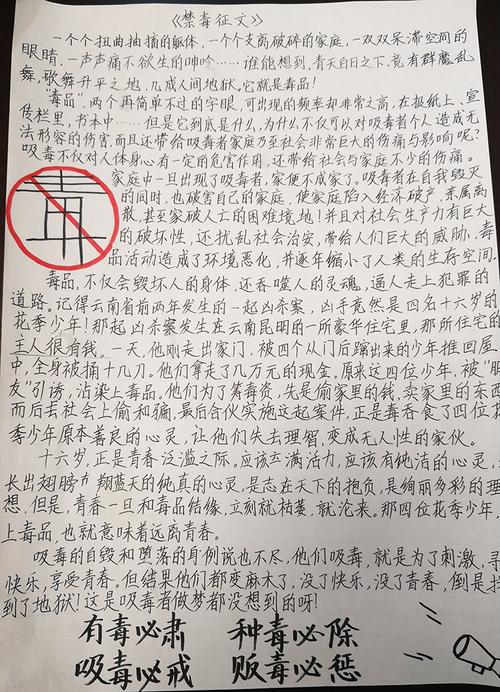 《禁毒征文》
一个个扭曲抽搐的躯体，一个个支离破碎的家庭，一双双呆滞空间的
眼睛，一声声痛不欲生的呻吟……谁能想到，青天白日之下，竟有群魔乱
舞，歌舞升平之地，几成人间地狱，它就是毒品！
“毒品”，两个再简单不过的字眼，可出现的频率却非常之高，在报纸上、宣
传栏里，书本中……但是它到底是什么，为什么，不仅可以对吸毒者个人造成无
法形容的伤害，而且还带给吸毒者家庭乃至社会非常巨大的伤痛与影响呢？
吸毒不仅对人体身心有一定的危害作用，还带给社会与家庭不少的伤痛。
家庭中一旦出现了吸毒者，家便不成家了。吸毒者在自我毁灭
的同时，也破害自己的家庭，使家庭陷入经济破产，亲属离
散，甚至家破人亡的困难境地！并且对社会生产力有巨大
的破坏性，还扰乱社会治安，带给人们巨大的威胁，毒
品活动造成了环境恶化，并逐年缩小了人类的生存空间。
毒
毒品，不仅会毁坏人的身体，还吞噬人的灵魂，逼人走上犯罪的
道路。记得云南省前两年发生的一起凶杀案，凶手竟然是四名十六岁的
花季少年！那起凶杀案发生在云南昆明的一所豪华住宅里，那所住宅的
主人很有钱。一天，他刚走出家门，被四个从门后蹿出来的少年推回屋
中，全身被捅十几刀。他们拿走了几万元的现金。原来这四位少年，被“朋
友”引诱，沾染上毒品。他们为了筹毒资，先是偷家里的钱，卖家里的东西
而后去社会上偷和骗，最后合伙实施这起案件。正是毒吞食了四位花
季少年原本善良的心灵，让他们失去理智，变成无人性的家伙。
十六岁，正是青春泛滥之际。应该充满活力，应该有纯洁的心灵，是
长出翅膀力翔蓝天的纯真的心灵，是志在天下的抱负，是绚丽多彩的理
想，但是，青春一旦和毒品结缘，立刻就枯萎，就沦来。那四位花季少年，
上毒品，也就意味着远离青春。
吸毒的自毁和堕落的身例说也不尽，他们吸毒，就是为了刺激，寻
快乐，享受青春。但结果他们都变麻木了，没了快乐，没了青春，倒是找
到了地狱！这是吸毒者做梦都没想到的呀！
有毒必肃 种毒必除
吸毒必戒 贩毒必惩